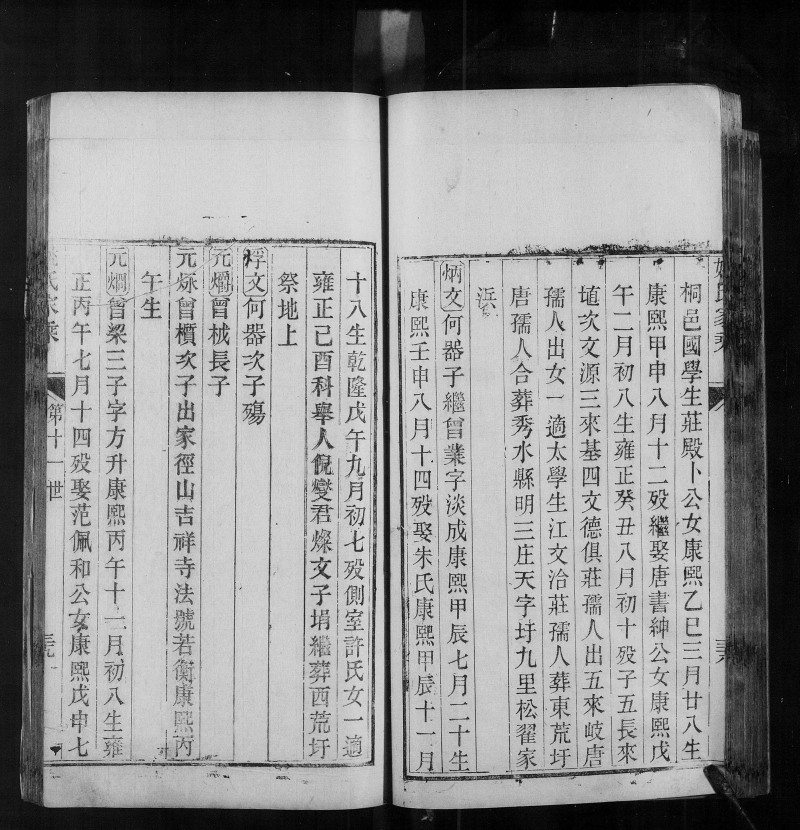 桐邑國學生莊殿卜公女康熙乙巳三月廿八生
康熙甲申八月十二歿繼娶唐書紳公女康熙戊
午二月初八生雍正癸丑八月初十歿子五長來
埴次文源三來基四文德俱莊孺人出五來岐唐
孺人出女一適太學生江文治莊孺人葬東荒圩
唐孺人合葬秀水縣明三庄天字圩九里松翟家
浜
炳文何器子繼曾業字淡成康熙甲辰七月二十生
康熙壬申八月十四歿娶朱氏康熙甲辰十一月
十八生乾隆戊午九月初七歿側室許氏女一適
雍正己酉科舉人倪燮君燦文子埍繼葬西荒圩
祭地上
桴文何器次子殤
元爝曾棫長子
元烁曾櫝次子出家徑山吉祥寺法號若衡康熙丙
午生
元爓曾梁三子字方升康熙丙午十一月初八生雍
正丙午七月十四歿娶范佩和公女康熙戊申七
氏家乘
第十一世